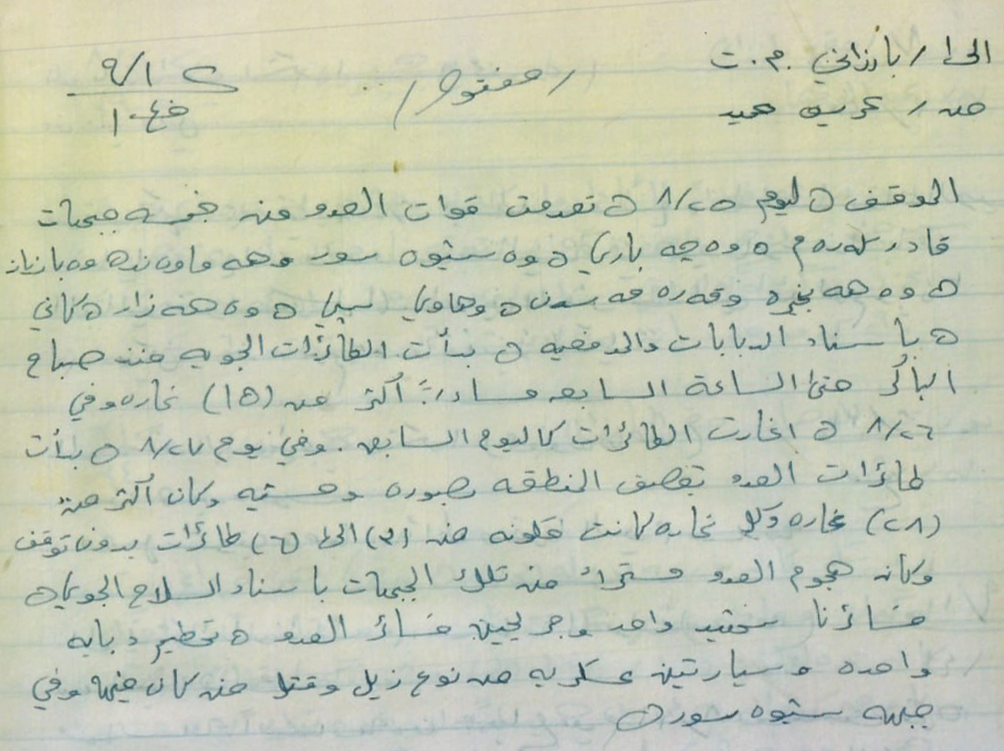 الى / بارزاني م.ت
من / عريف حميد
/ مفتوح /
٩/١ ٢
الموقف ه ليوم ٨/٢٥ ه تعرضت قوات العدو من خمسه جبهات
قادر كه ره م ه وه چه باريا ه وه ستيوه سور وهه ماوه ندا ه وه بازيان
ه وه هه نجيره وقه ره مه سه ن ه وهاوي لسپي ه وه هه زار ه كاني
ه با سناد الدبابات والمدفعيه ه بدأت الطائرات الجويه منذ صباح
الباكر حتى الساعة السابعه مساءً أكثر من (١٥) غاره وفي
٨/٢٦ ه اغارت الطائرات كاليوم السابق. وفي يوم ٨/٢٧ ه بدأت
طائرات العدو تقصف المنطقه بصوره وحشيه وكان أكثر من
(٢٨) غاره وكل غاره كانت مكونه من (٣) الى (٦) طائرات بدون توقف
وكان هجوم العدو مستمراً من تلك الجبهات با سناد السلاح الجوي ه
خسائرنا شهيد واحد وجريحين خسائر العدو ه تحطيم دبابه
واحده وسيارتين عسكريه من نوع زيل وقتل من كان فيها وفي
جبهه ستيوه سور ه